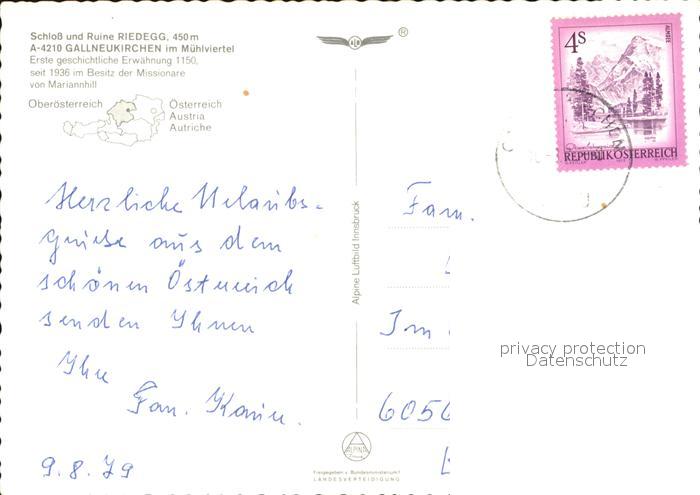 Schloß und Ruine RIEDEGG, 450 m
A-4210 GALLNEUKIRCHEN im Mühlviertel
Erste geschichtliche Erwähnung 1150,
seit 1936 im Besitz der Missionare
von Mariannhill
Oberösterreich
Österreich
Austria
Autriche
®
4 S
ALMSEE
REPUBLIK ÖSTERREICH
Herzliche Urlaubs-
grüße aus dem
schönen Österreich
senden Ihnen
Ihre
Fam.
9.8.79
Alpine Luftbild Innsbruck
Fam.
Im
6056
privacy protection
Datenschutz
ALPINE
Freigegeben v. Bundesministerium f.
LANDESVERTEIDIGUNG